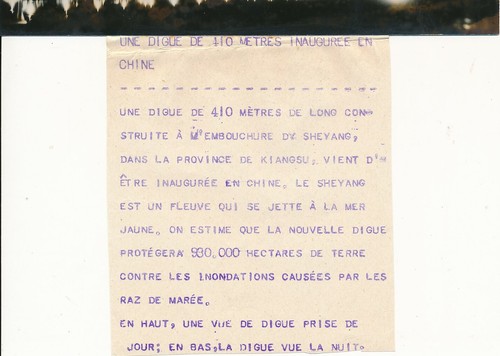 UNE DIGUE DE 410 METRES INAUGUREE EN
CHINE
UNE DIGUE DE 410 MÈTRES DE LONG CON-
STRUITE À M'EMBOUCHURE DV SHEYANG,
DANS LA PROVINCE DE KIANGSU, VIENT D'-
ÊTRE INAUGURÉE EN CHINE. LE SHEYANG
EST UN FLEUVE QUI SE JETTE À LA MER
JAUNE. ON ESTIME QUE LA NOUVELLE DIGUE
PROTÉGERA 930.000 HECTARES DE TERRE
CONTRE LES INONDATIONS CAUSÉES PAR LES
RAZ DE MARÉE.
EN HAUT, UNE VUE DE DIGUE PRISE DE
JOUR; EN BAS,LA DIGUE VUE LA NUIT.